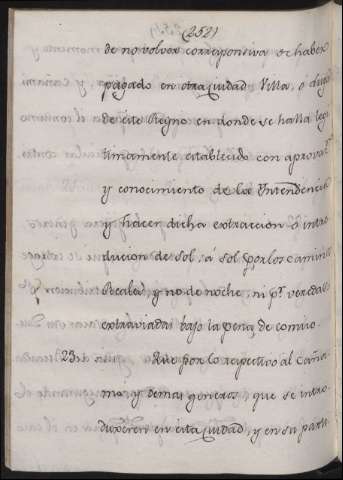 (252)
de no volver corresponsiva se haber
pagado en otra Ciudad Villa, ó Lugar
de este Reyno en donde se halla legi
timamente establecido con aprovaz.ⁿ
y conocimiento de la Yntendencia
y hacer dicha extraccion ó intro
ducion de sol, á sol por los caminos
Reales, y no de noche, ni p.ʳ veredas
extraviadas bajo la pena de comiso.
23. Que por lo respectivo al Caña
mo, y demas generos, que se intro
dugeren en esta Ciudad, y en su parti